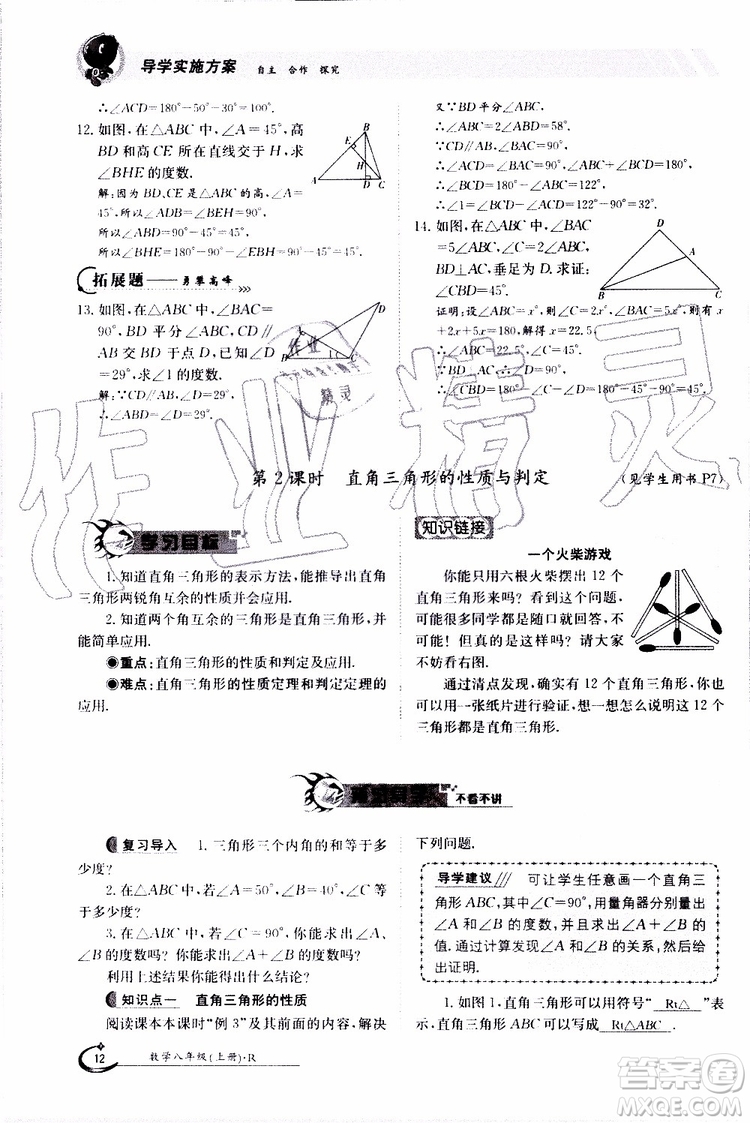 导学实施方案 自主 合作 探究
∴∠ACD=180°-50°-30°-9°.
12. 如图,在△ABC中,∠A=45°,高
BD和高CE所在直线交于H,求
∠BHE的度数.
解:因为BD、CE是△ABC的高,∠A=
45°,所以∠ADB=∠BEH=90°,
所以∠ABD=180°-90°-45°=45°,
所以∠BHE=180°-90°-∠EBH=90°-45°=45°.
拓展题——勇攀高峰
13. 如图,在△ABC中,∠BAC=
90°,BD平分∠ABC,CD∥
AB交BD于点D,已知∠D
=29°,求∠1的度数.
解:∵CD∥AB,∠D=29°,
∴∠ABD=∠D=29°.
又∵BD平分∠ABC,
∴∠ABC=2∠ABD=58°.
∵CD∥AB,∠BAC=90°,
∴∠ACD=90°.
∴∠ABC+∠BCD=180°.
∴∠BCD=180°-∠ABC=122°.
∴∠1=∠BCD-90°=122°-90°=32°.
14. 如图,在△ABC中,∠BAC
=5∠ABC,∠BAC=∠ACB,
BD⊥AC,垂足为D,求证:
∠CBD=∠ABC.
证明:设∠ABC=x°,则∠C=2x°,∠BAC=5x°.则有x
+2x+5x=180,解得x=22.5,
∴∠ABC=22.5°,∠C=45°.
∴∠CBD=180°-∠D-∠C=180°-90°-45°=45°.
∴∠CBD=2∠ABC.
第2课时 直角三角形的性质与判定 (见学生用书P7)
学习目标
1. 知道直角三角形的表示方法,能推导出直角
三角形两锐角互余的性质并会应用.
2. 知道两个角互余的三角形是直角三角形,并
能简单应用.
◉重点:直角三角形的性质和判定及应用.
◉难点:直角三角形的性质定理和判定定理的
应用.
知识链接
一个火柴游戏
你能只用六根火柴摆出12个
直角三角形来吗?看到这个问题,
很多同学都是随口就回答:不可能,
不可能!但真的是这样吗?请大家
不妨看右图.
通过清点发现,确实有12个直角三角形,你可
以作一张纸片进行验证,想一想怎么说明这12个
三角形都是直角三角形.
不看不讲
复习导入 1. 三角形三个内角的和等于多
少度?
2. 在△ABC中,若∠A=50°,∠B=40°,则∠C
等于多少度?
3. 在△ABC中,∠C=90°,你能求出∠A、
∠B的度数吗?你能求出∠A+∠B的度数吗?
利用上述结果你能得出什么结论?
知识点一 直角三角形的性质
阅读课本本课时“例3”及其前面的内容,解决
下列问题.
导学建议 可让学生任意画一个直角三
角形ABC,其中∠C=90°,用量角器分别量
出∠A和∠B的度数,并求出∠A+∠B的
值.通过计算发现∠A和∠B的关系,然后给
出证明.
1. 如图1,直角三角形可以用符号“ Rt△ ”
来表示,直角三角形ABC可以写成 Rt△ABC .
12 数学八年级(上册)·R
作业精灵
答案圈
MXQE.COM